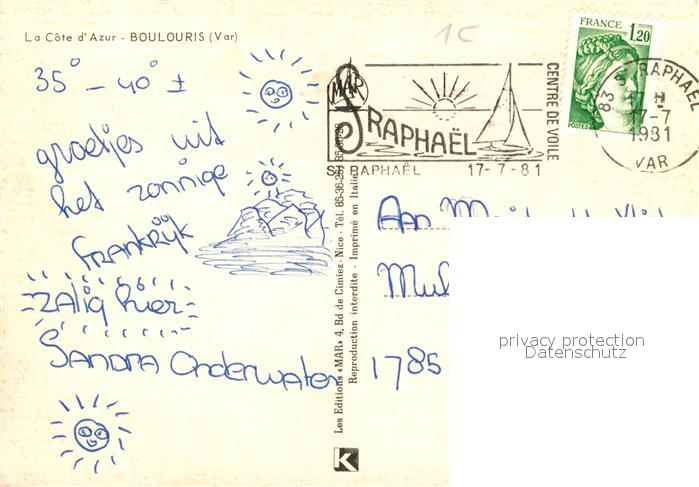 La Côte d'Azur - BOULOURIS (Var)
35° - 40° ±
groetjes uit
het zonnige
Frankrijk
zalig hier
SANDRA Onderwater
1C
MAR
St RAPHAËL
CENTRE DE VOILE
ST RAPHAËL 17-7-81
FRANCE
1,20
POSTES
83 ST RAPHAEL
17-7
1981
VAR
Les Editions «MAR» 4, Bd de Cimiez - Nice - Tél.
Reproduction interdite - Imprimé en Italie
Aan
1785
K
privacy protection
Datenschutz